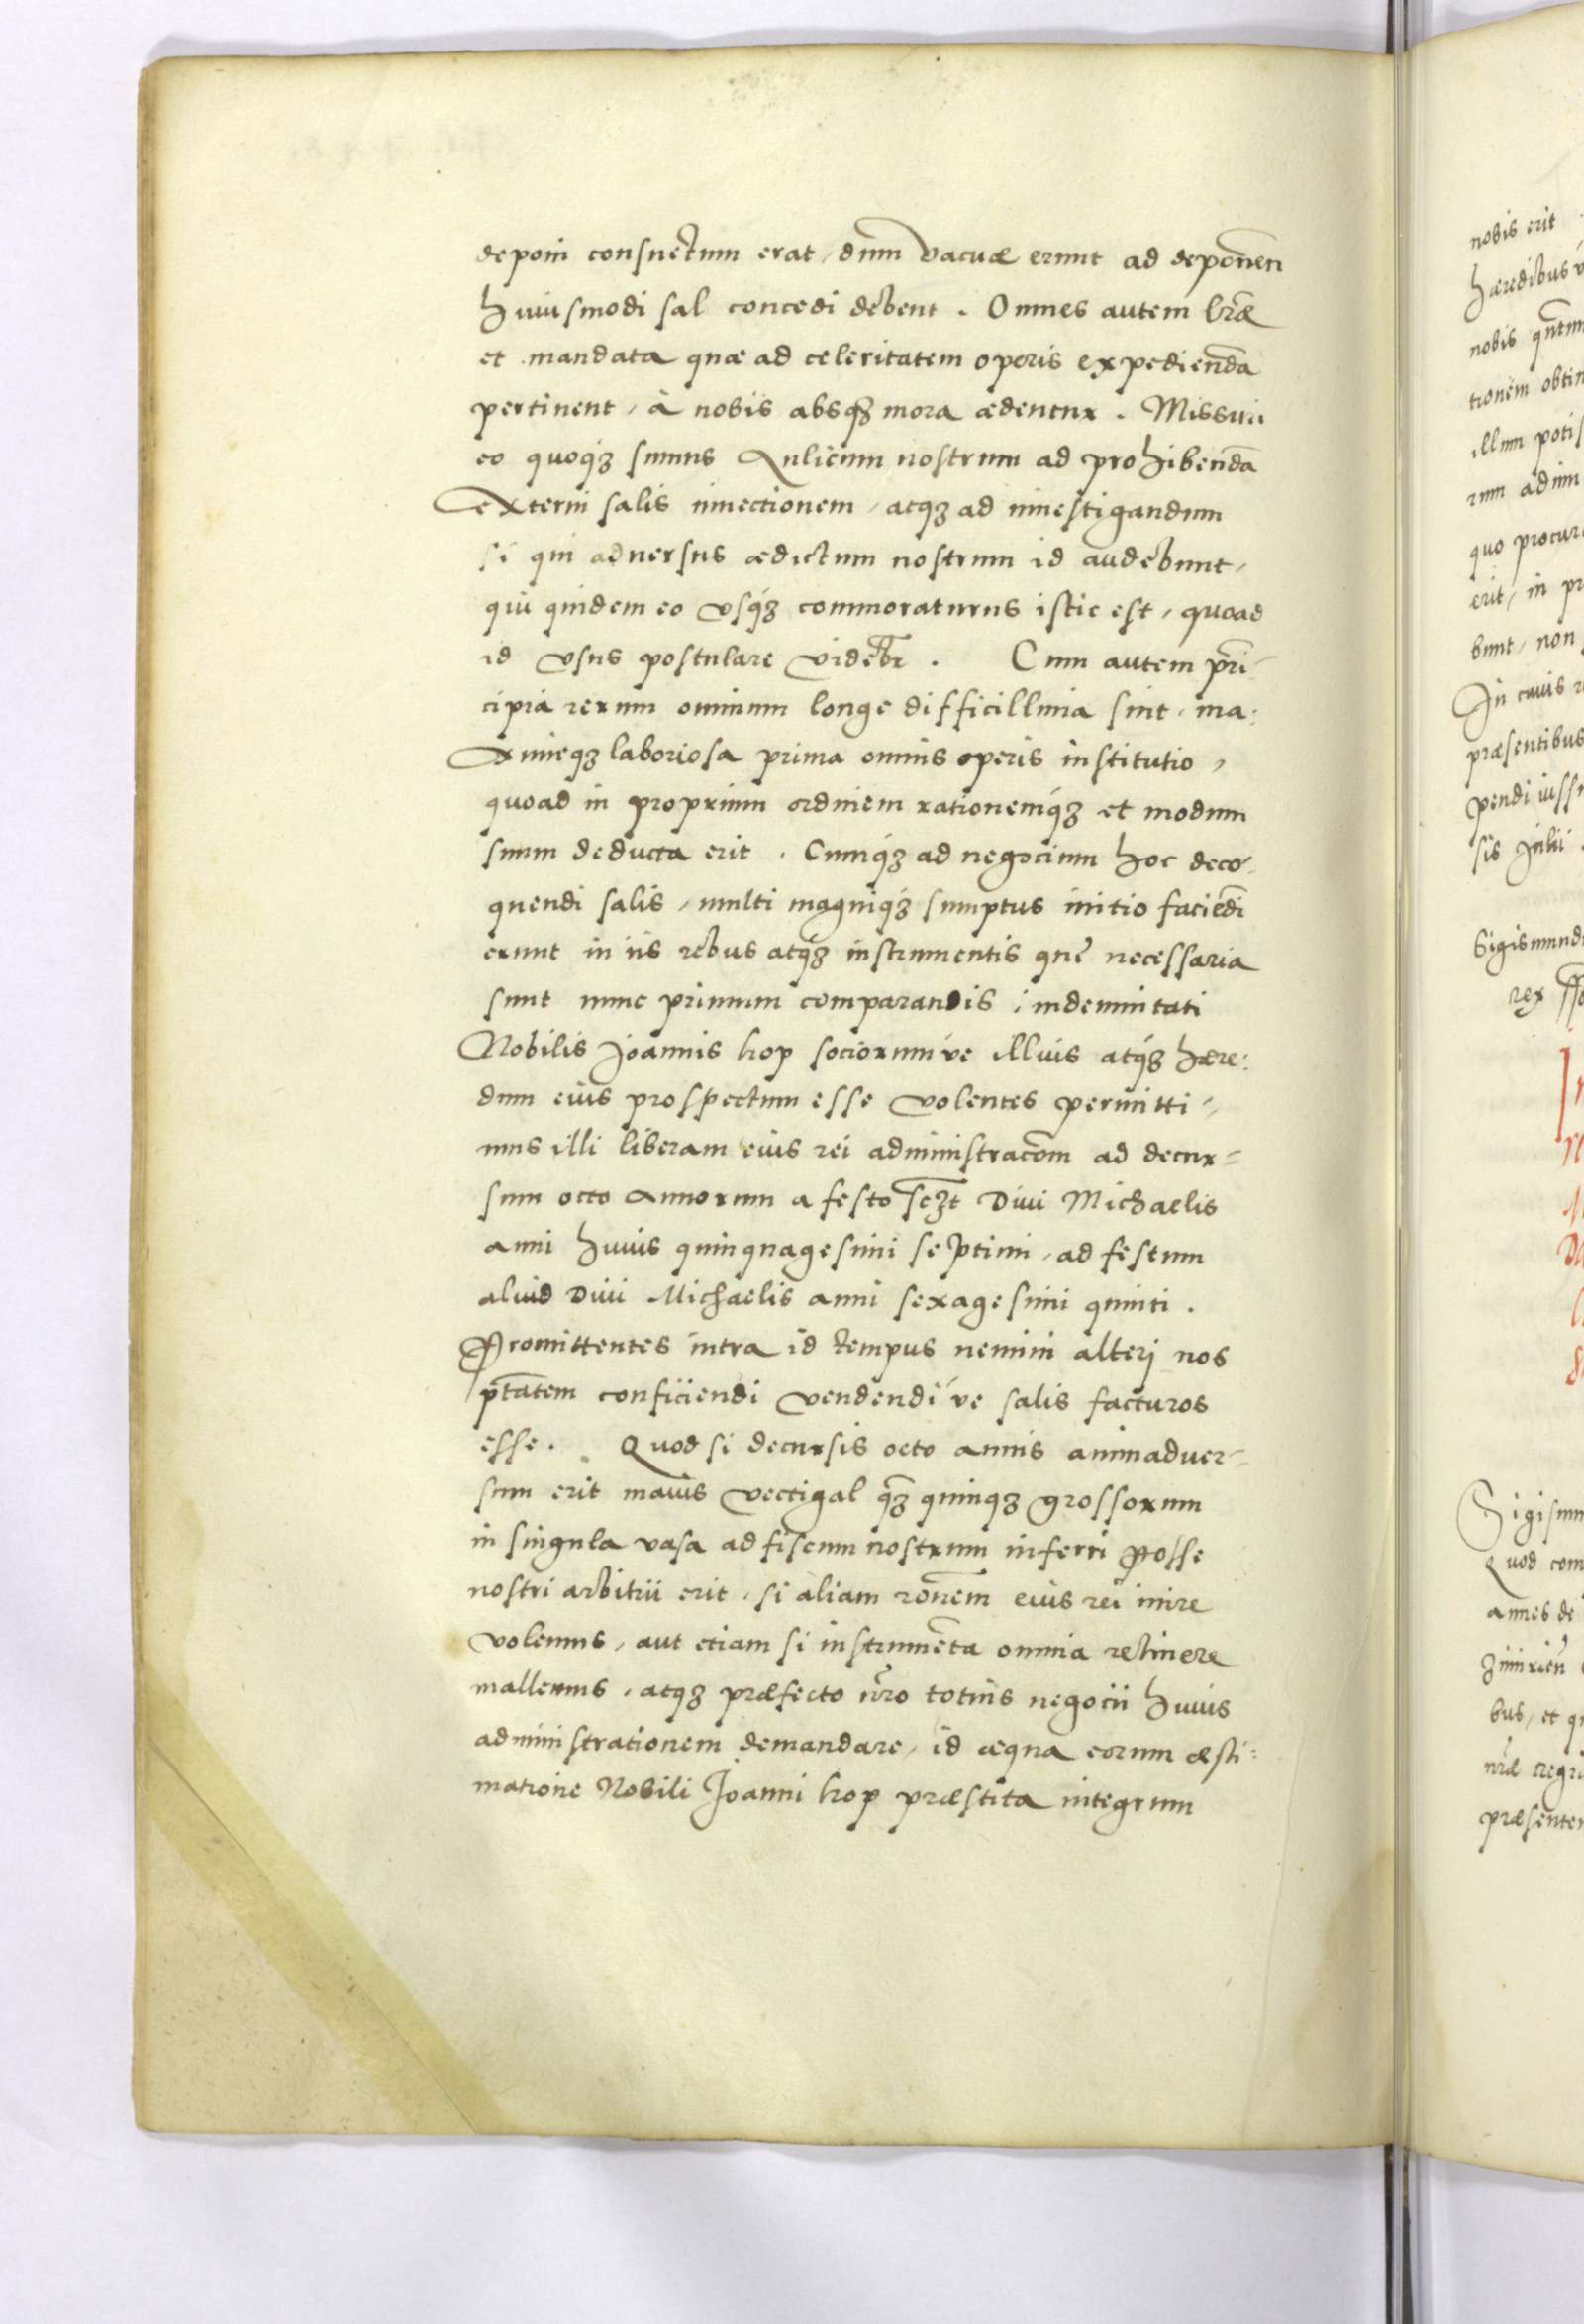 deponi consuetum erat, dum vacuae erunt ad deponen̄
huiusmodi sal concedi debent. Omnes autem lr̄ae
et mandata quae ad celeritatem operis expediendā
pertinent, à nobis absqȝ mora aedentur. Missuri
eo quoqȝ sumus Aulicum nostrum ad prohibendā
externi salis inuectionem, atqȝ ad inuestigandum
si qui aduersus aedictum nostrum id audebunt,
qui quidem eo vsqȝ commoraturus istic est, quoad
id vsus postulare videbr̄. Cum autem prī-
cipia rerum omnium longe difficillima sint, ma:
ximeqȝ laboriosa prima omnis operis institutio,
quoad in proprium ordinem rationemqȝ et modum
suum deducta erit. Cumqȝ ad negocium hoc deco-
quendi salis, multi magniqȝ sumptus initio faciēdi
erunt in iis rebus atqȝ instrumentis que necessaria
sunt nunc primum comparandis, indemnitati
Nobilis Joannis kop sociorumve illius atqȝ haere:
dum eius prospectum esse volentes permitti-
mus illi liberam eius rei administracōm ad decur=
sum octo annorum a festo scȝt Diui Michaelis
anni huius quinquagesimi septimi, ad festum
aliud Diui Michaelis anni sexagesimi quinti.
Promittentes intra id tempus nemini alterj nos
ptātem conficiendi vendendi've salis facturos
esse. Quod si decursis octo annis animaduer-
sum erit maius vectigal qȝ̄ quinqȝ grossorum
in singula vasa ad fiscum nostrum inferri posse
nostri arbitrii erit, si aliam rōnem eius rei inire
volemus, aut etiam si instrumēta omnia retinere
mallemus, atqȝ praefecto nr̄o totius negocii huius
administrationem demandare, id aequa eorum aesti:
matione Nobili Joanni kop praestita integrum
nobis erit
haeredibus
nobis
tionem
illum
rum
quo
erit, in
bunt, non
In cuius
praesentibus
pendi
sis Julii
rex
Quod
annes de
bus, et